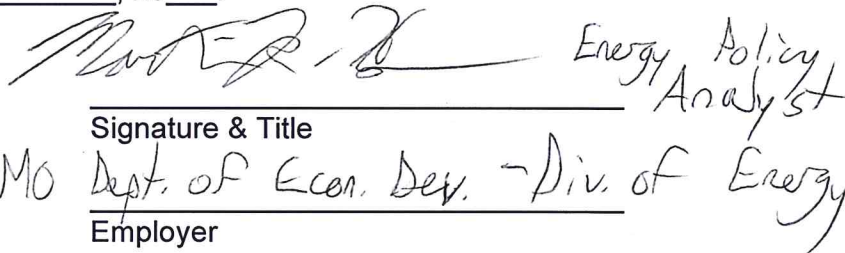 Energy Policy
Analyst
Signature & Title
MO Dept. of Econ. Dev. - Div. of Energy
Employer